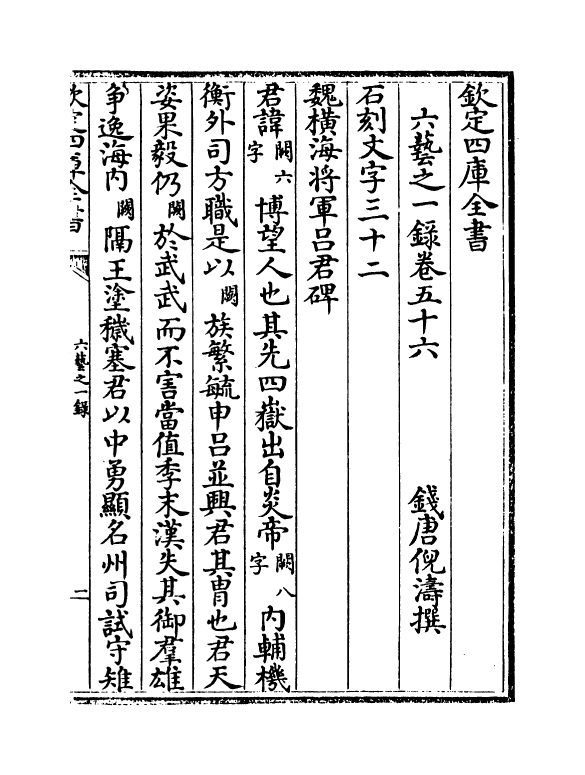 欽定四庫全書
六藝之一錄卷五十六
錢唐倪濤撰
石刻文字三十二
魏橫海将軍吕君碑
君諱闕六字博望人也其先四嶽出自炎帝闕八字内輔機
衡外司方職是以闕族繁毓申吕並興君其胄也君天
姿果毅仍闕於武武而不害當值季末漢失其御羣雄
争逸海内闕隔王塗穢塞君以中勇顯名州司試守雉
欽定四庫全書
六藝之一錄
二